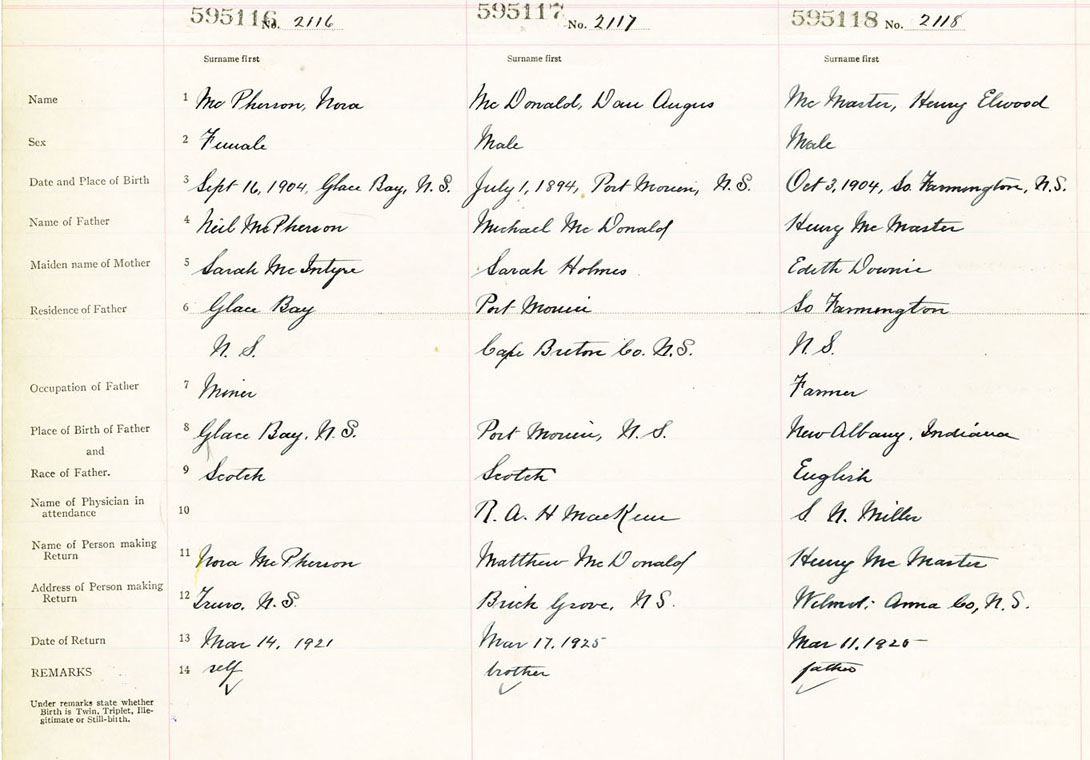 595116 No. 2116 595117 No. 2117 595118 No. 2118
Surname first Surname first Surname first
Name 1 Mc Pherson, Nora Mc Donald, Dan Angus Mc Master, Henry Elwood
Sex 2 Female Male Male
Date and Place of Birth 3 Sept 16, 1904, Glace Bay, N.S. July 1, 1894, Port Morien, N.S. Oct 3, 1904, So. Farmington, N.S.
Name of Father 4 Neil McPherson Michael Mc Donald Henry Mc Master
Maiden name of Mother 5 Sarah McIntyre Sarah Holmes Edith Downie
Residence of Father 6 Glace Bay Port Morien So Farmington
N. S. Cape Breton Co. N.S. N.S.
Occupation of Father 7 Miner Farmer
Place of Birth of Father 8 Glace Bay, N.S. Port Morien, N.S. New Albany, Indiana
and
Race of Father. 9 Scotch Scotch English
Name of Physician in
attendance 10 R. A. H MacKeen S. N. Miller
Name of Person making
Return 11 Nora McPherson Matthew McDonald Henry Mc Master
Address of Person making
Return 12 Truro, N.S. Brick Grove, N.S. Wilmot, Anna Co, N.S.
Date of Return 13 Mar 14, 1921 Mar 17, 1925 Mar 11, 1925
REMARKS 14 self brother father
Under remarks state whether
Birth is Twin, Triplet, Ille-
gitimate or Still-birth.